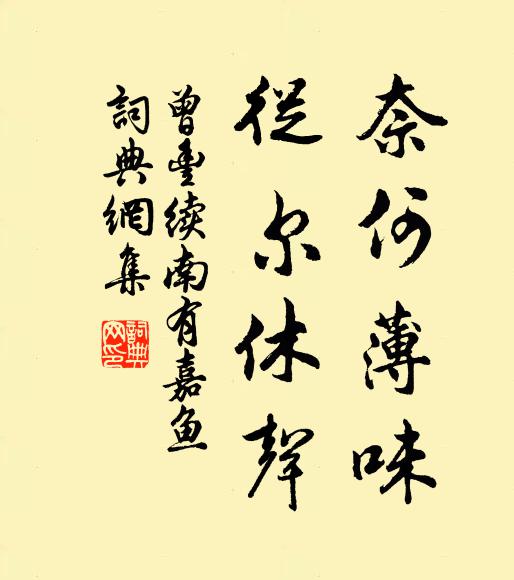 奈何薄味
從尔休聲
曾豐续南有嘉魚
詞典網集
詞典网印